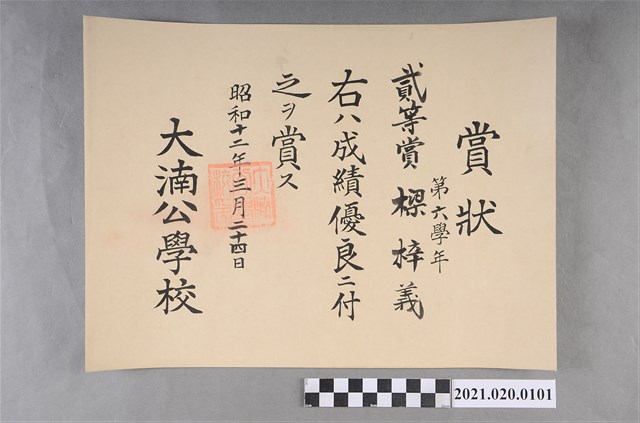 賞狀
第六學年
貳等賞 樑梓義
右ハ成績優良ニ付
之ヲ賞ス
昭和十二年三月二十四日
大湳公學校
2021.020.0101